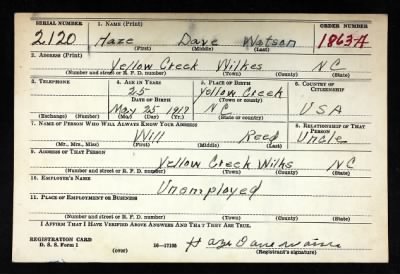 SERIAL NUMBER 1. NAME (Print) ORDER NUMBER
2120 Haze Dave Watson 1863-A
(First) (Middle) (Last)
2. ADDRESS (Print)
Yellow Creek Wilkes NC
(Number and street or R. F. D. number) (Town) (County) (State)
3. TELEPHONE 4. AGE IN YEARS 5. PLACE OF BIRTH 6. COUNTRY OF CITIZENSHIP
25 Yellow Creek
DATE OF BIRTH (Town or county)
May 25 1917 NC USA
(Exchange) (Number) (Mo.) (Day) (Yr.) (State or country)
7. NAME OF PERSON WHO WILL ALWAYS KNOW YOUR ADDRESS 8. RELATIONSHIP OF THAT PERSON
Will Reed Uncle
(Mr., Mrs., Miss) (First) (Middle) (Last)
9. ADDRESS OF THAT PERSON
Yellow Creek Wilks NC
(Number and street or R. F. D. number) (Town) (County) (State)
10. EMPLOYER'S NAME
Unomployed
11. PLACE OF EMPLOYMENT OR BUSINESS
(Number and street or R. F. D. number) (Town) (County) (State)
I AFFIRM THAT I HAVE VERIFIED ABOVE ANSWERS AND THAT THEY ARE TRUE.
REGISTRATION CARD
D. S. S. Form 1 (over) 16—17105
(Registrant's signature)